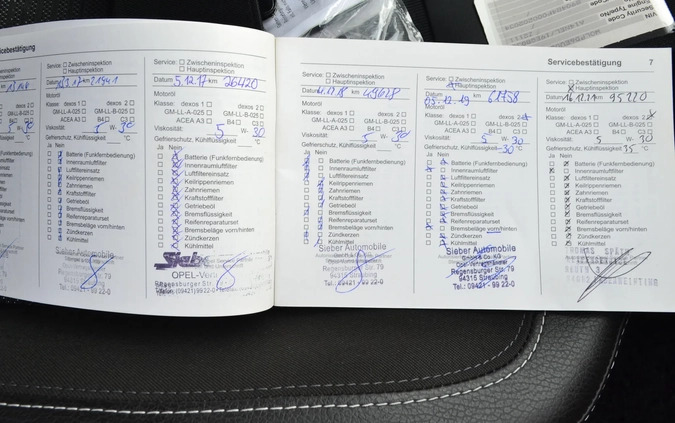 VIN
Security Code
Engine Type/No
Code
rvicebestätigung
Zwischeninspektion
Hauptinspektion
km 21941
Klasse: dexos 1 dexos 2
GM-LL-A-025 GM-LL-B-025
ACEA A3 B4 C3
Viskosität: 5 W- 30
Gefrierschutz, Kühlflüssigkeit °C
Ja Nein
Batterie (Funkfernbedienung)
Innenraumluftfilter
Luftfiltereinsatz
Keilrippenriemen
Zahnriemen
Kraftstofffilter
Getriebeöl
Bremsflüssigkeit
Reifenreparaturset
Bremsbeläge vorn/hinten
Zündkerzen
Kühlmittel
Service: Zwischeninspektion
Hauptinspektion
Datum 5.12.17 km 26420
Motoröl
Klasse: dexos 1 dexos 2
GM-LL-A-025 GM-LL-B-025
ACEA A3 B4 C3
Viskosität: 5 W- 30
Gefrierschutz, Kühlflüssigkeit °C
Ja Nein
Batterie (Funkfernbedienung)
Innenraumluftfilter
Luftfiltereinsatz
Keilrippenriemen
Zahnriemen
Kraftstofffilter
Getriebeöl
Bremsflüssigkeit
Reifenreparaturset
Bremsbeläge vorn/hinten
Zündkerzen
Kühlmittel
OPEL-Ver
Regensburger Str. 79
Telefon: (09421) 99 22-0
Servicebestätigung 7
Service: Zwischeninspektion
Hauptinspektion
Datum km 49618
Motoröl
Klasse: dexos 1 dexos 2
GM-LL-A-025 GM-LL-B-025
ACEA A3 B4 C3
Viskosität: 5 W- 30
Gefrierschutz, Kühlflüssigkeit °C
Ja Nein
Batterie (Funkfernbedienung)
Innenraumluftfilter
Luftfiltereinsatz
Keilrippenriemen
Zahnriemen
Kraftstofffilter
Getriebeöl
Bremsflüssigkeit
Reifenreparaturset
Bremsbeläge vorn/hinten
Zündkerzen
Kühlmittel
Sieber Automobile
Regensburger Str. 79
94315 Straubing
Tel.: 09421 - 99 22-0
Service: Zwischeninspektion
Hauptinspektion
Datum 05.12.19 km 61758
Motoröl
Klasse: dexos 1 dexos 2
GM-LL-A-025 GM-LL-B-025
ACEA A3 B4 C3
Viskosität: 5 W- 30
Gefrierschutz, Kühlflüssigkeit -30 °C
Ja Nein
Batterie (Funkfernbedienung)
Innenraumluftfilter
Luftfiltereinsatz
Keilrippenriemen
Zahnriemen
Kraftstofffilter
Getriebeöl
Bremsflüssigkeit
Reifenreparaturset
Bremsbeläge vorn/hinten
Zündkerzen
Kühlmittel
Sieber Automobile
GmbH & Co. KG
Opel-Vertragshändler
Regensburger Str. 79
94315 Straubing
Tel.: 09421 - 99 22-0
Service: Zwischeninspektion
Hauptinspektion
Datum 16.12.21 km 95220
Motoröl
Klasse: dexos 1 dexos 2
GM-LL-A-025 GM-LL-B-025
ACEA A3 B4 C3
Viskosität: 5 W- 30
Gefrierschutz, Kühlflüssigkeit 35 °C
Ja Nein
Batterie (Funkfernbedienung)
Innenraumluftfilter
Luftfiltereinsatz
Keilrippenriemen
Zahnriemen
Kraftstofffilter
Getriebeöl
Bremsflüssigkeit
Reifenreparaturset
Bremsbeläge vorn/hinten
Zündkerzen
Kühlmittel